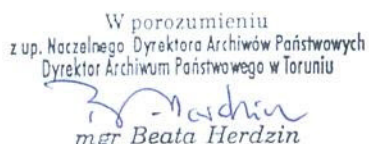 W porozumieniu
z up. Naczelnego Dyrektora Archiwów Państwowych
Dyrektor Archiwum Państwowego w Toruniu
mgr Beata Herdzin